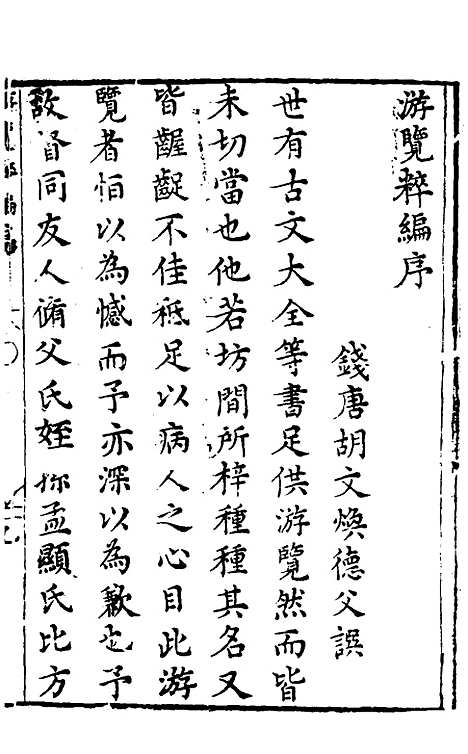 游覽粹編序
錢唐胡文煥德父譔
世有古文大全等書足供游覽然而皆
未切當也他若坊間所梓種種其名又
皆齷齪不佳秪足以病人之心目此游
覽者怕以為憾而予亦深以為歉也予
故督同友人脩父氏姪孺孟顯氏比方